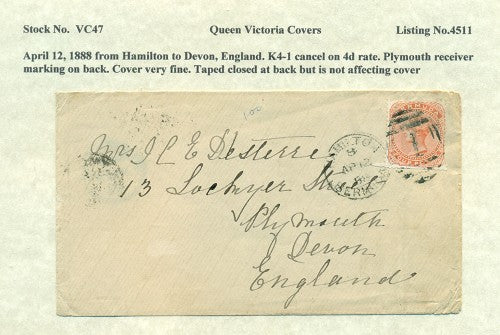 Stock No. VC47 Queen Victoria Covers Listing No.4511
April 12, 1888 from Hamilton to Devon, England. K4-1 cancel on 4d rate. Plymouth receiver
marking on back. Cover very fine. Taped closed at back but is not affecting cover
100
Mrs J C E Desterre
13 Lockyer
Plymouth
Devon
England
1